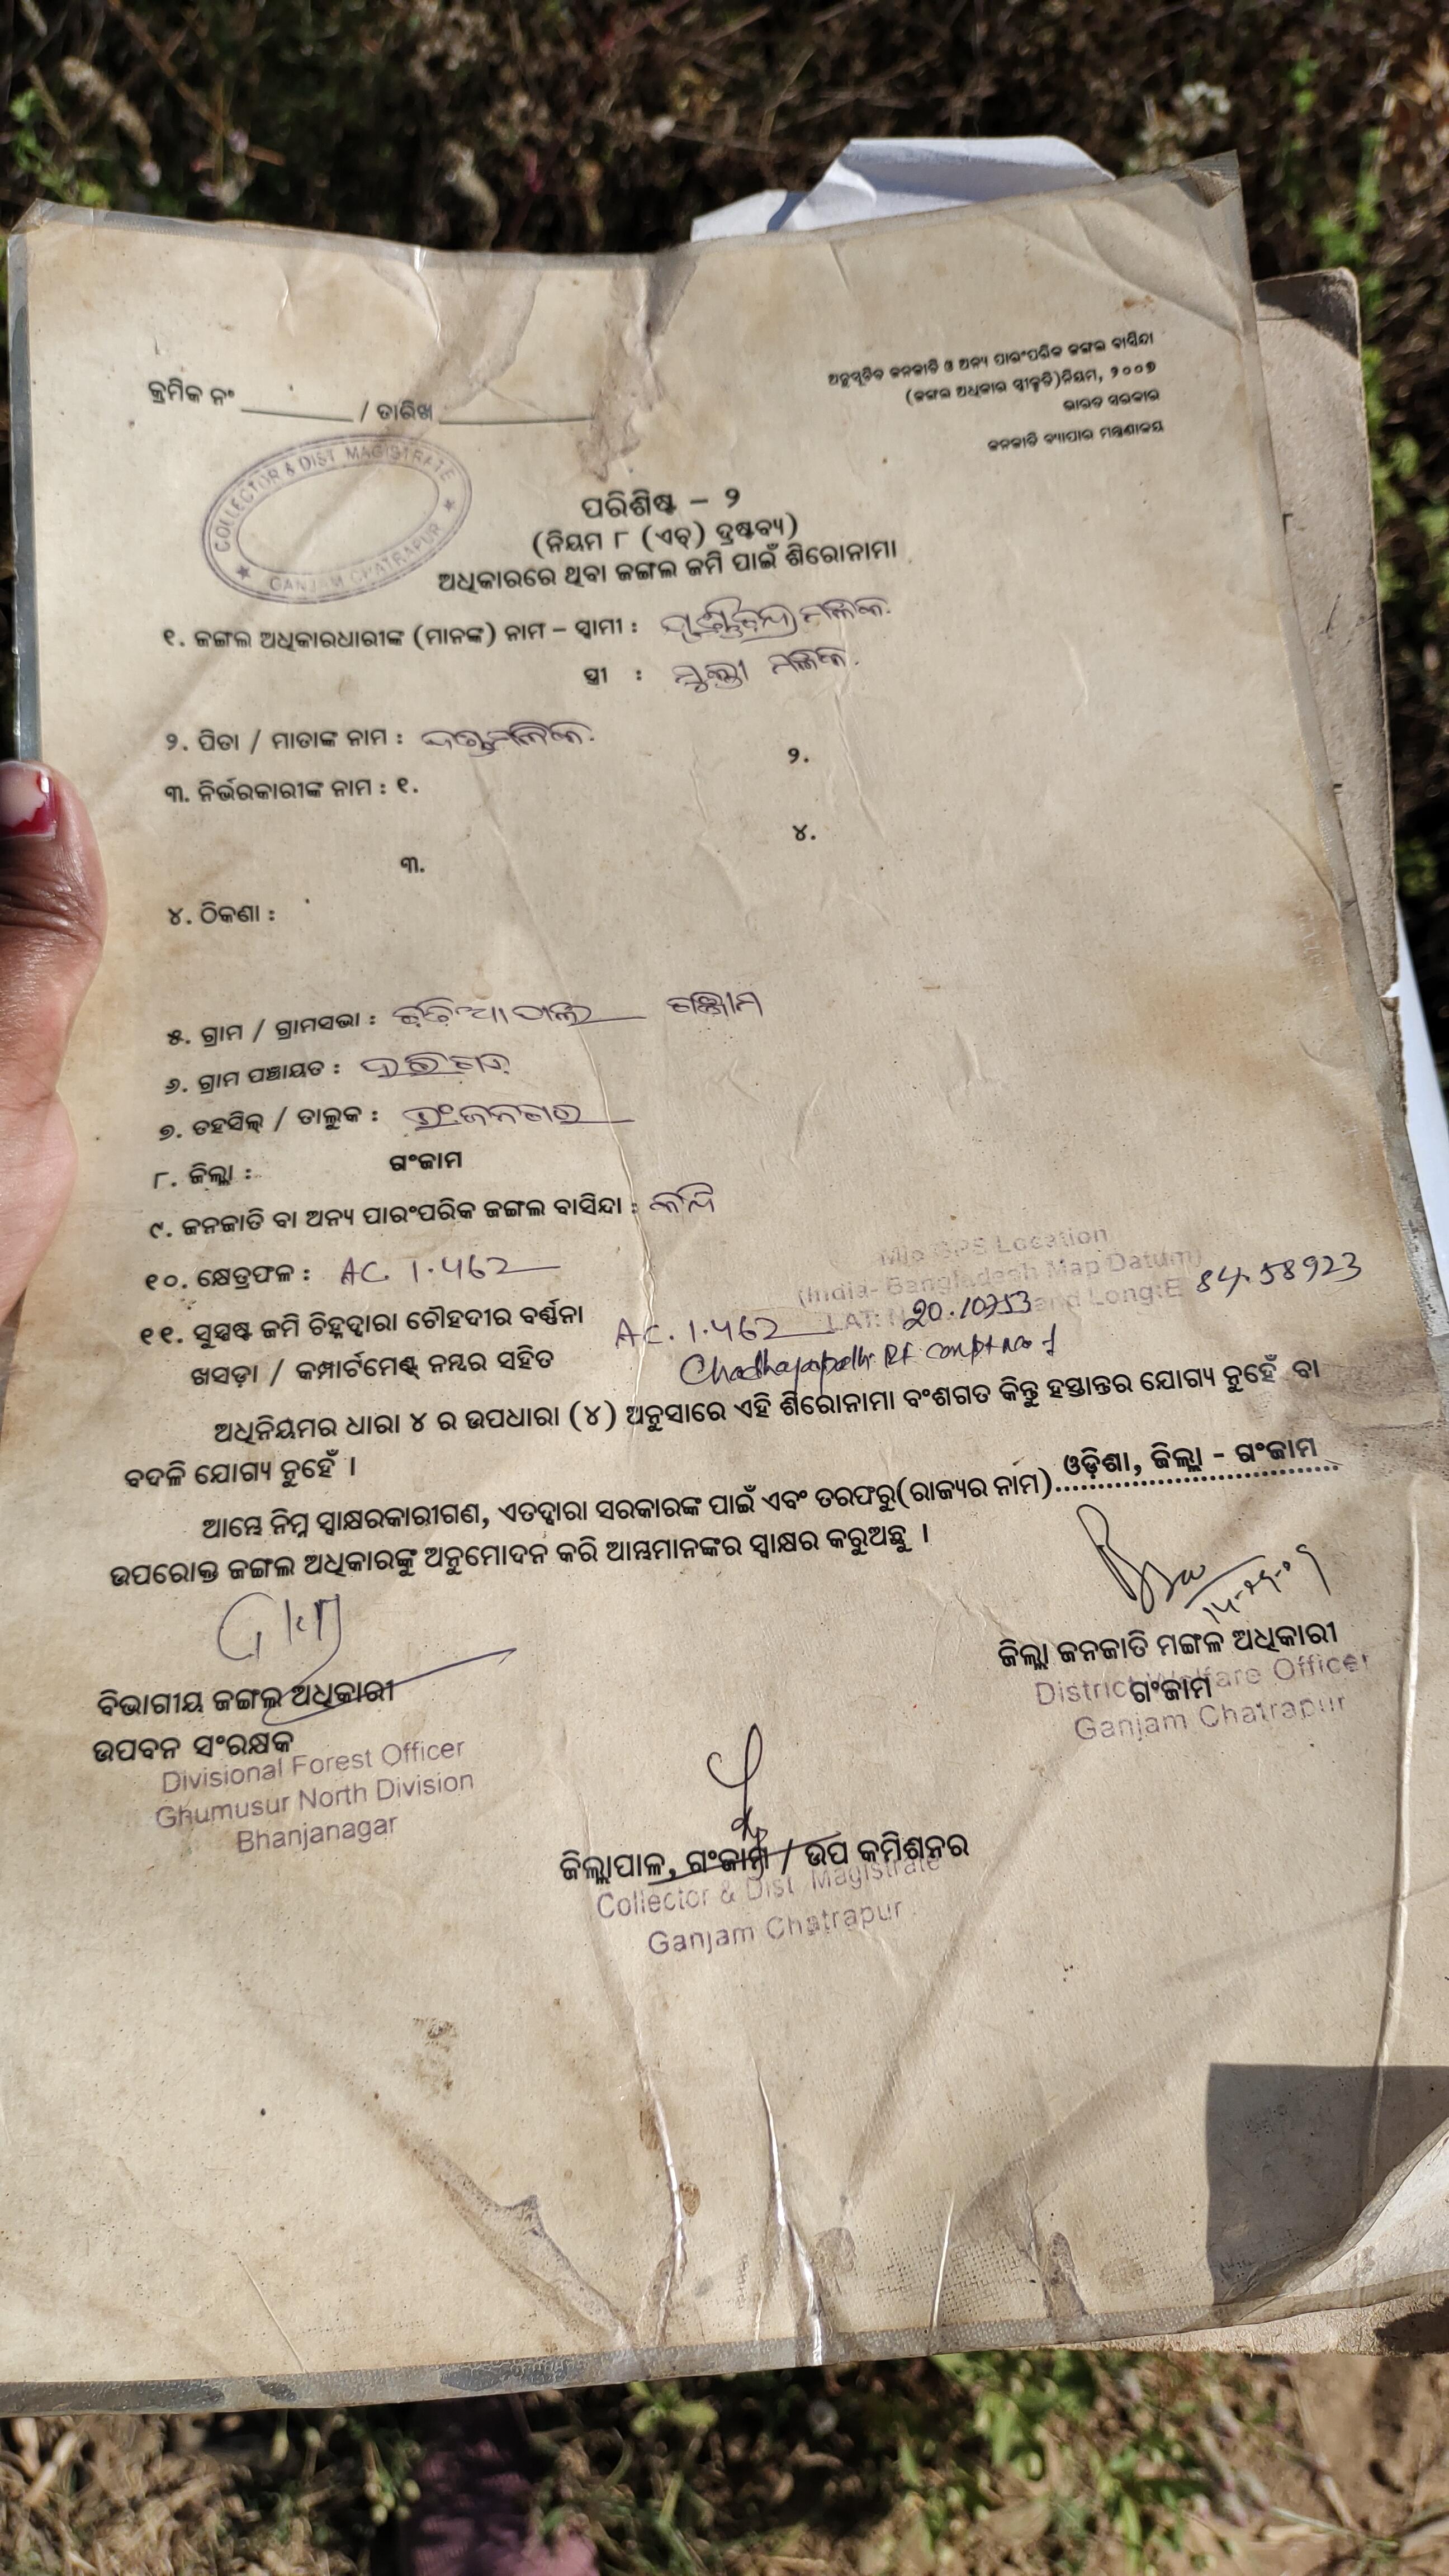 ଅନୁସୂଚିତ ଜନଜାତି ଓ ଅନ୍ୟ ପାରଂପରିକ ଜଙ୍ଗଲ ବାସିନ୍ଦା
(ଜଙ୍ଗଲ ଅଧିକାର ସ୍ୱୀକୃତି)ନିୟମ, ୨୦୦୭
ଭାରତ ସରକାର
ଜନଜାତି ବ୍ୟାପାର ମନ୍ତ୍ରଣାଳୟ
କ୍ରମିକ ନଂ / ତାରିଖ
COLLECTOR & DIST MAGISTRATE
GANJAM CHATRAPUR
ପରିଶିଷ୍ଟ – ୨
(ନିୟମ ୮ (ଏଚ୍) ଦ୍ରଷ୍ଟବ୍ୟ)
ଅଧିକାରରେ ଥିବା ଜଙ୍ଗଲ ଜମି ପାଇଁ ଶିରୋନାମା
୧. ଜଙ୍ଗଲ ଅଧିକାରଧାରୀଙ୍କ (ମାନଙ୍କ) ନାମ – ସ୍ୱାମୀ : ମଳିକ
ସ୍ତ୍ରୀ : ମଳିକ
୨. ପିତା / ମାତାଙ୍କ ନାମ : ମଳିକ
୩. ନିର୍ଭରକାରୀଙ୍କ ନାମ : ୧. ୨.
୩. ୪.
୪. ଠିକଣା :
୫. ଗ୍ରାମ / ଗ୍ରାମସଭା :
୬. ଗ୍ରାମ ପଞ୍ଚାୟତ :
୭. ତହସିଲ୍ / ତାଲୁକ :
୮. ଜିଲ୍ଲା : ଗଂଜାମ
୯. ଜନଜାତି ବା ଅନ୍ୟ ପାରଂପରିକ ଜଙ୍ଗଲ ବାସିନ୍ଦା : କନ୍ଧ
୧୦. କ୍ଷେତ୍ରଫଳ : AC. 1.462
GPS Location
(India- Bangladesh Map Datum)
LAT: N 20.10753 and Long:E 84.58923
୧୧. ସୁସ୍ପଷ୍ଟ ଜମି ଚିହ୍ନଦ୍ୱାରା ଚୌହଦୀର ବର୍ଣ୍ଣନା AC. 1.462
ଖସଡ଼ା / କମ୍ପାର୍ଟମେଣ୍ଟ୍ ନମ୍ବର ସହିତ RF
ଅଧିନିୟମର ଧାରା ୪ ର ଉପଧାରା (୪) ଅନୁସାରେ ଏହି ଶିରୋନାମା ବଂଶଗତ କିନ୍ତୁ ହସ୍ତାନ୍ତର ଯୋଗ୍ୟ ନୁହେଁ ବା
ବଦଳି ଯୋଗ୍ୟ ନୁହେଁ ।
ଆମ୍ଭେ ନିମ୍ନ ସ୍ୱାକ୍ଷରକାରୀଗଣ, ଏତଦ୍ୱାରା ସରକାରଙ୍କ ପାଇଁ ଏବଂ ତରଫରୁ(ରାଜ୍ୟର ନାମ) ଓଡ଼ିଶା, ଜିଲ୍ଲା - ଗଂଜାମ
ଉପରୋକ୍ତ ଜଙ୍ଗଲ ଅଧିକାରଙ୍କୁ ଅନୁମୋଦନ କରି ଆମ୍ଭମାନଙ୍କର ସ୍ୱାକ୍ଷର କରୁଅଛୁ ।
ଜିଲ୍ଲା ଜନଜାତି ମଙ୍ଗଳ ଅଧିକାରୀ
ଗଂଜାମ
District Welfare Officer
Ganjam Chatrapur
ବିଭାଗୀୟ ଜଙ୍ଗଲ ଅଧିକାରୀ
ଉପବନ ସଂରକ୍ଷକ
Divisional Forest Officer
Ghumusur North Division
Bhanjanagar
ଜିଲ୍ଲାପାଳ, ଗଂଜାମ / ଉପ କମିଶନର
Collector & Dist. Magistrate
Ganjam Chatrapur